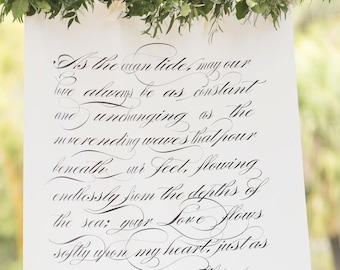 As the ocean tide, may our
love always be as constant
and unchanging as the
neverending waves that pour
beneath our feet, flowing
endlessly from the depths of
the sea; your love flows
softly upon my heart, just as